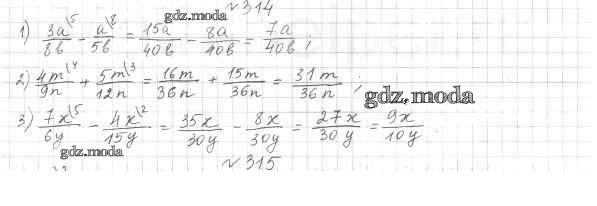 №314
gdz.moda
1) 3a\5/8b - a\8/5b = 15a/40b - 8a/40b = 7a/40b ;
2) 4m\4/9n + 5m\3/12n = 16m/36n + 15m/36n = 31m/36n ;
gdz.moda
3) 7x\5/6y - 4x\2/15y = 35x/30y - 8x/30y = 27x/30y = 9x/10y .
gdz.moda
№315